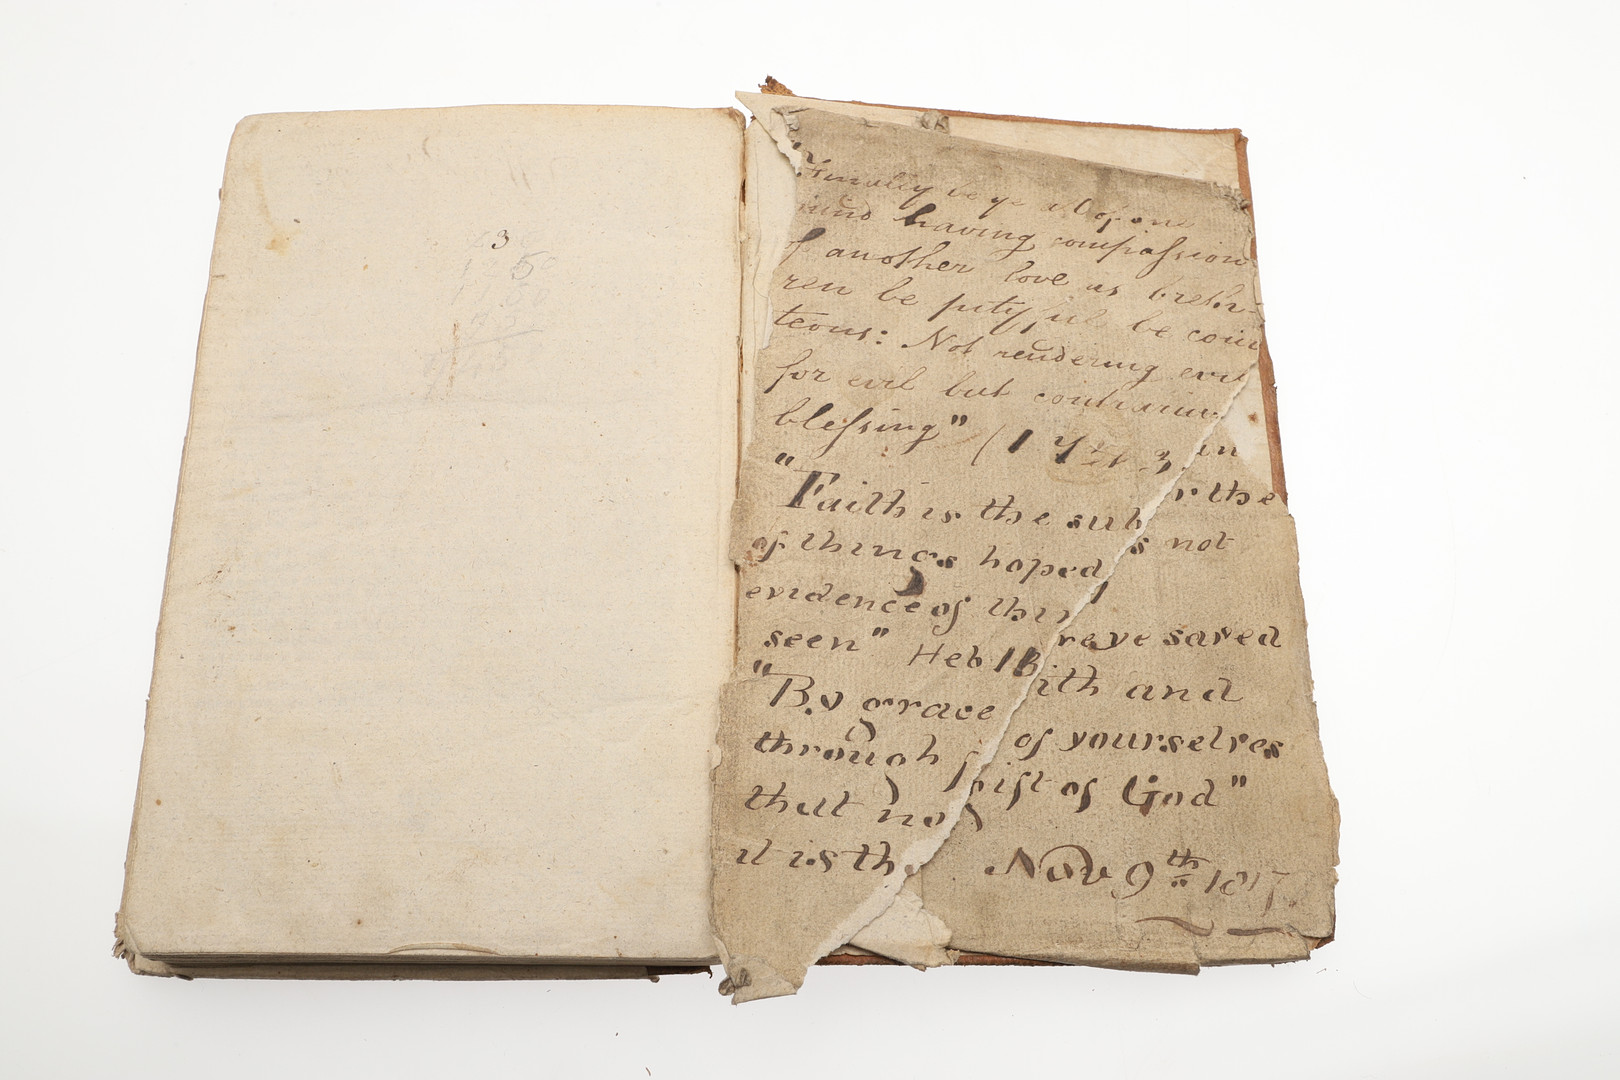 3
5
"Finally be ye all of one
mind having compassion
of another love as breth-
ren be pitifful be cour
teous: Not rendering evil
for evil but contrariw
blessing" (1
"Faith is the sub r the
of things hoped s not
evidence of thin
seen" Heb 11
"By grace re ye saved
through f ith and
that no of yourselves
it is th gift of God"
Nov 9th 1817